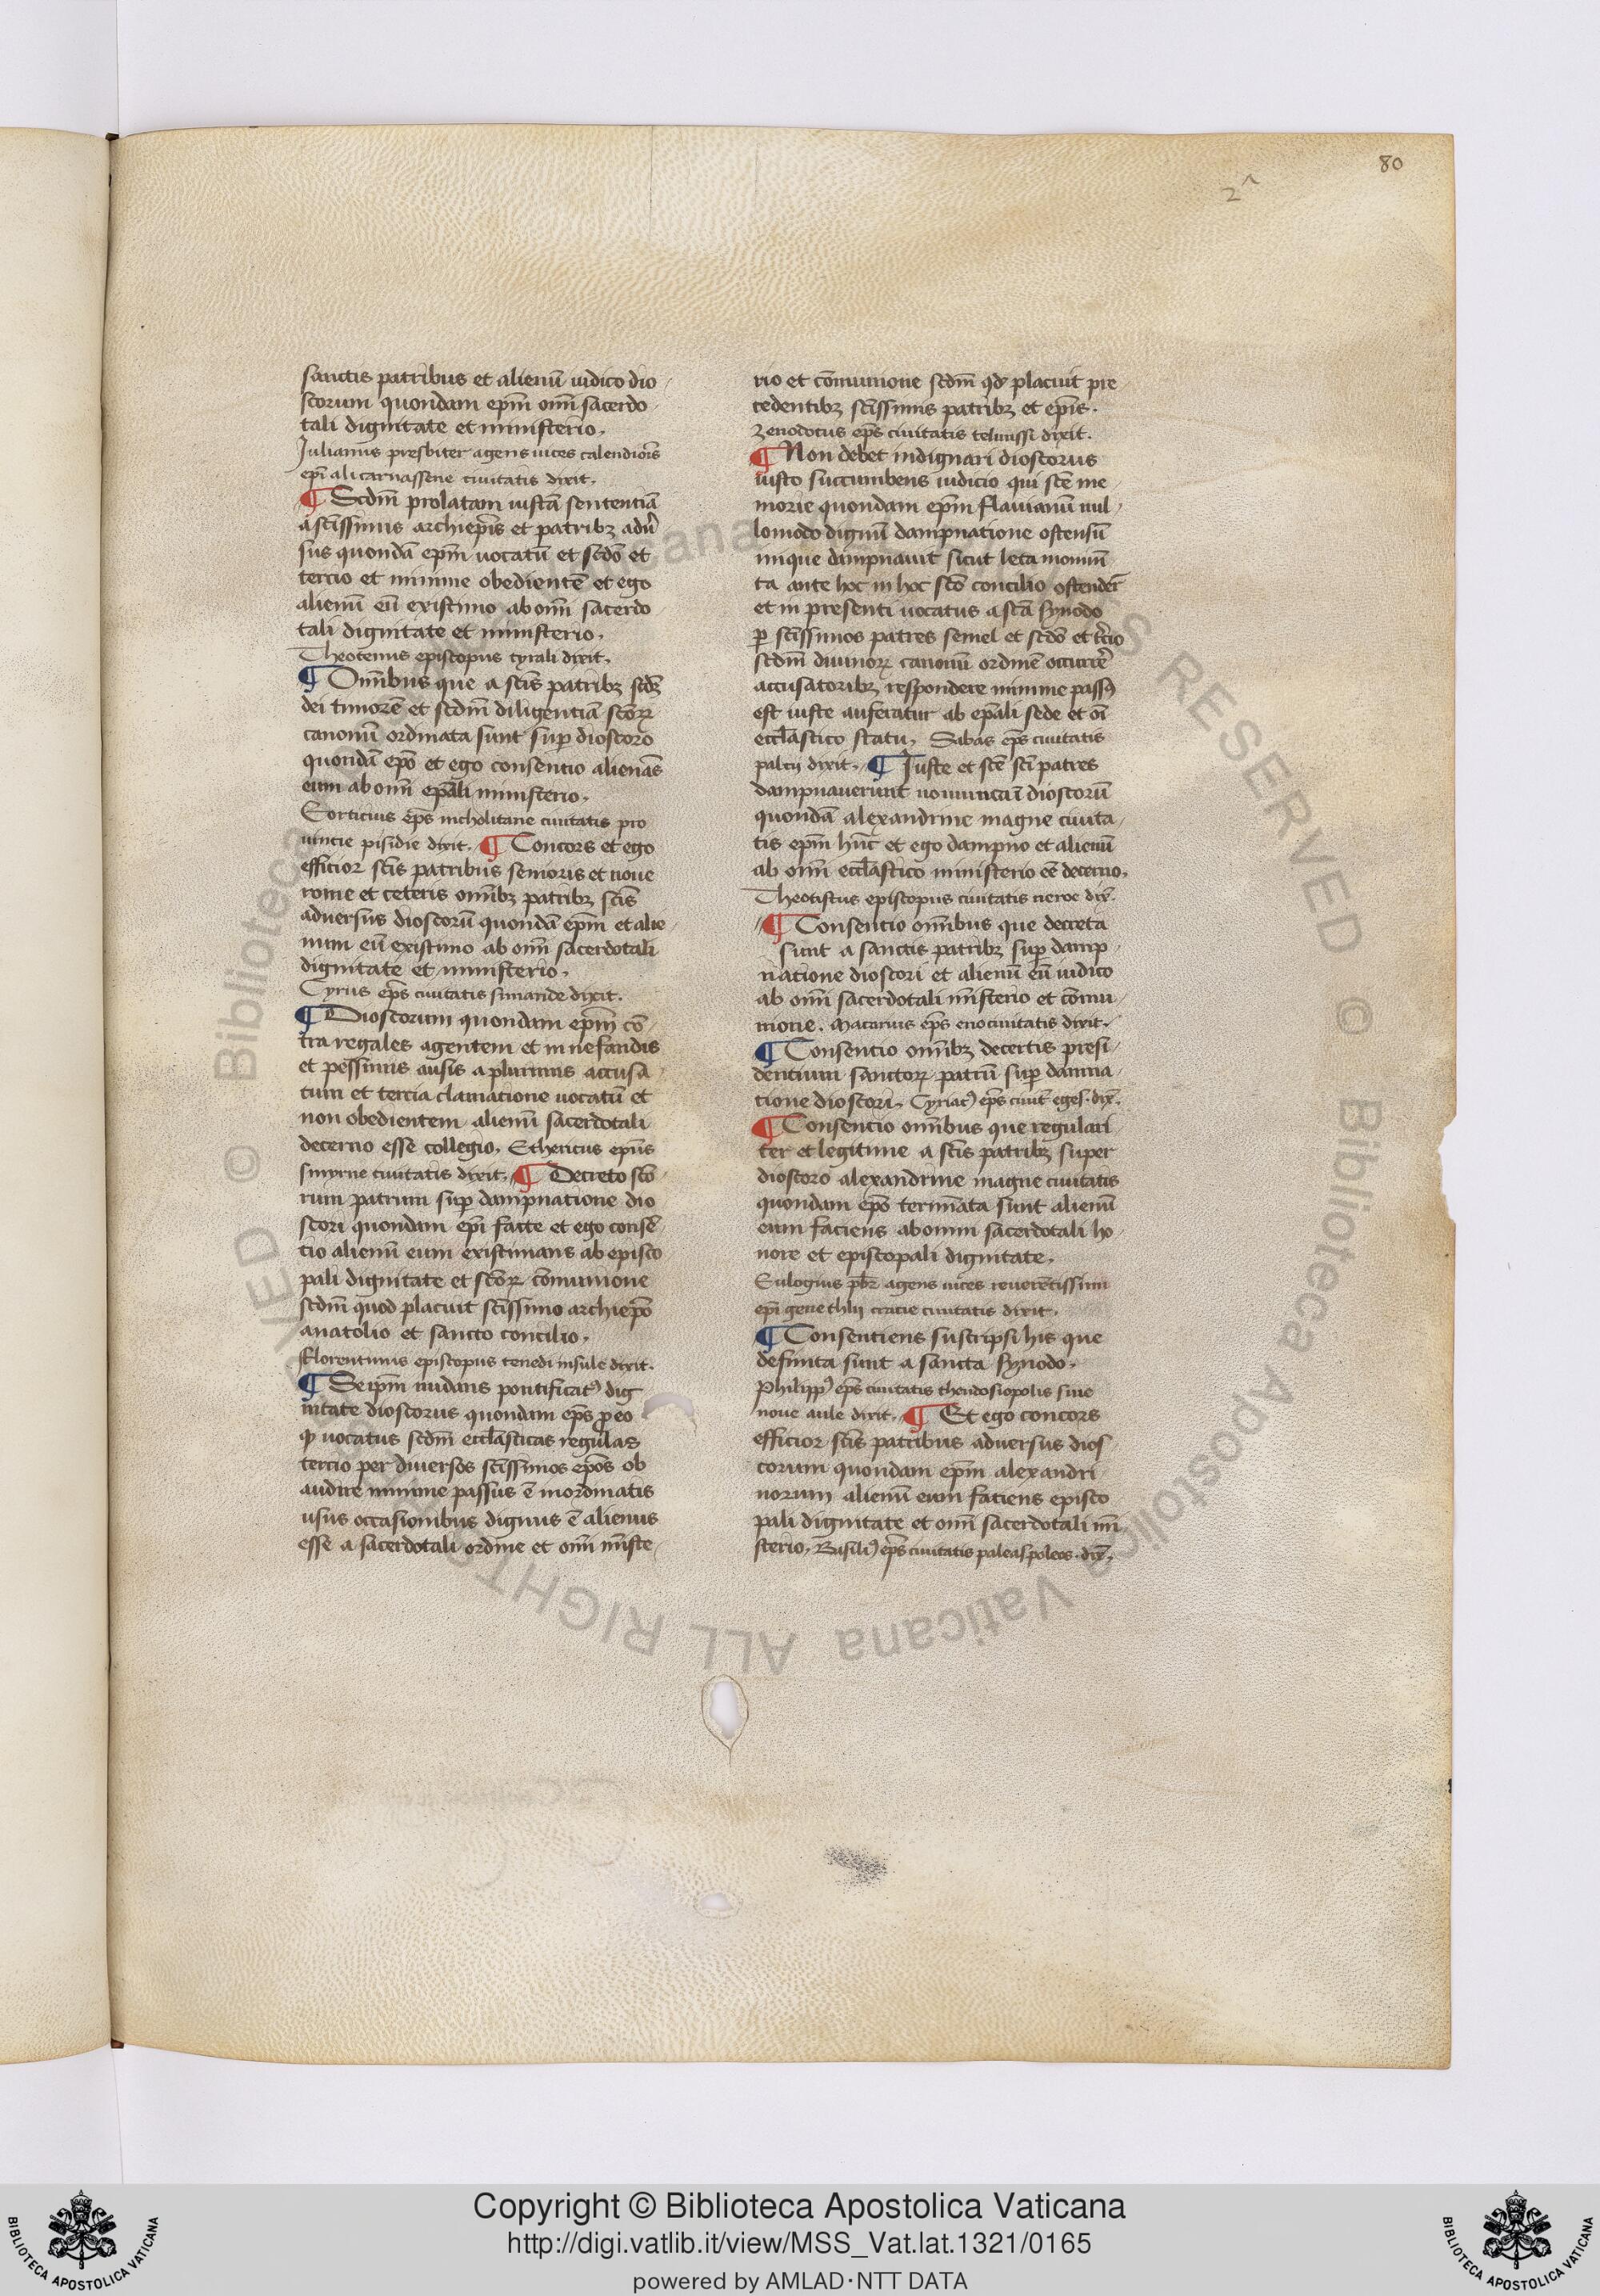 80
2ᴬ
sanctis patribus et alienū iudico dio
scorum quondam epm̄ om̄i sacerdo
tali dignitate et ministerio.
Iulianus presbiter agens uices calendior̄s
epī alicarnassene ciuitatis dixit.
¶ Scdm̄ prolatam iustā sententiā
a sctīssimis archiepīs et patribꝫ adū
sus quondā epm̄ uocatū et scdō et
tercio et minime obedientē et ego
alienū eū existimo ab om̄i sacerdo
tali dignitate et ministerio.
Theotenus episcopus tyrali dixit.
¶ Om̄ibus que a sctīs patribꝫ scdꝫ
dei timorē et scdm̄ diligentiā sctōꝝ
canonū ordinata sunt suꝑ dioscoro
quondā epō et ego consentio alienās
eum ab om̄i epāli ministerio.
Eorticius ep̄s nicholitane ciuitatis pro
uincie pisidie dixit. ¶ Concors et ego
efficior sctīs patribus senioris et noue
rome et ceteris om̄ibꝫ patribꝫ sctīs
aduersus dioscorū quondā epm̄ et alie
num eū existimo ab om̄i sacerdotali
dignitate et ministerio.
Cyrus ep̄s ciuitatis simande dixit.
¶ Dioscorum quondam epm̄ cō
tra regales agentem et in nefandis
et pessimis ausis a plurimis accusa
tum et tercia clamatione uocatū et
non obedientem alienū sacerdotali
decerno esse collegio. Ethericus epūs
smyrne ciuitatis dixit. ¶ Decreto sctō
rum patrum suꝑ dampnatione dio
scori quondam epī facte et ego consē
tio alienū eum existimans ab episco
pali dignitate et sctōꝝ cōmunione
scdm̄ quod placuit sctīssimo archiepō
anatolio et sancto concilio.
Florentinus episcopus tenedi insule dixit.
¶ Seipm̄ nudans pontificatꝰ dig
nitate dioscorus quondam ep̄s ꝓ eo
ꝙ uocatus scdm̄ eccl̄asticas regulas
tercio per diuersos sctīssimos epōs ob
audire minime passus ē inordinatis
usus occasionibus dignus ē alienus
esse a sacerdotali ordine et om̄i mīste
rio et cōmunione scdm̄ qd̄ placuit pre
cedentibꝫ sctīssimis patribꝫ et epīs.
Zenodotus ep̄s ciuitatis telmissi dixit.
¶ Non debet indignari dioscorus
iusto succumbens iudicio qui sctē me
morie quondam epm̄ flauianū nul
lomodo dignū dampnatione ostensū
inique dampnauit sicut lecta monim̄
ta ante hoc in hoc sctō concilio ostender̄
et in presenti uocatus a sctā synodo
ꝑ sctīssimos patres semel et scdō et tr̄cio
scdm̄ diuinoꝝ canonū ordinē occurrē
accusatoribꝫ respondere minime passꝰ
est iuste auferatur ab epāli sede et oī
eccl̄astico statu. Sabas ep̄s ciuitatis
paltij dixit. ¶ Iuste et sctē sctī patres
dampnauerunt dioscorū
quondā alexandrine magne ciuita
tis epm̄ hūc et ego dampno et alienū
ab om̄i eccl̄astico ministerio eē decerno.
Theotistus episcopus ciuitatis neroe dix̄.
¶ Consentio om̄ibus que decreta
sunt a sanctis patribꝫ suꝑ damp
natione dioscori et alienū eū iudico
ab om̄i sacerdotali mīsterio et cōmu
nione. Macarius ep̄s eno ciuitatis dixit.
¶ Consentio om̄ibꝫ decertis presi
dentium sanctoꝝ patrū suꝑ damna
tione dioscori. Cyriacꝰ ep̄s ciuit̄ eges. dix̄.
¶ Consentio om̄ibus que regulari
ter et legitime a sctīs patribꝫ super
dioscoro alexandrine magne ciuitatis
quondam epō termīata sunt alienū
eum faciens ab omni sacerdotali ho
nore et episcopali dignitate.
Eulogius pbr̄ agens uices reuerētissimi
epī genethlij cratie ciuitatis dixit.
¶ Consentiens suscripsi his que
definita sunt a sancta synodo.
Philippꝰ ep̄s ciuitatis theodosiopolis siue
noue aule dixit. ¶ Et ego concors
efficior sctīs patribus aduersus dios
corum quondam epm̄ alexandri
norum alienū eum faciens episco
pali dignitate et om̄i sacerdotali mī
sterio. Basiliꝰ ep̄s ciuitatis paleaspoleos. dix̄.
© Biblioteca Apostolica Vaticana ALL RIGHTS RESERVED
Copyright © Biblioteca Apostolica Vaticana
http://digi.vatlib.it/view/MSS_Vat.lat.1321/0165
powered by AMLAD·NTT DATA
BIBLIOTECA APOSTOLICA VATICANA
BIBLIOTECA APOSTOLICA VATICANA